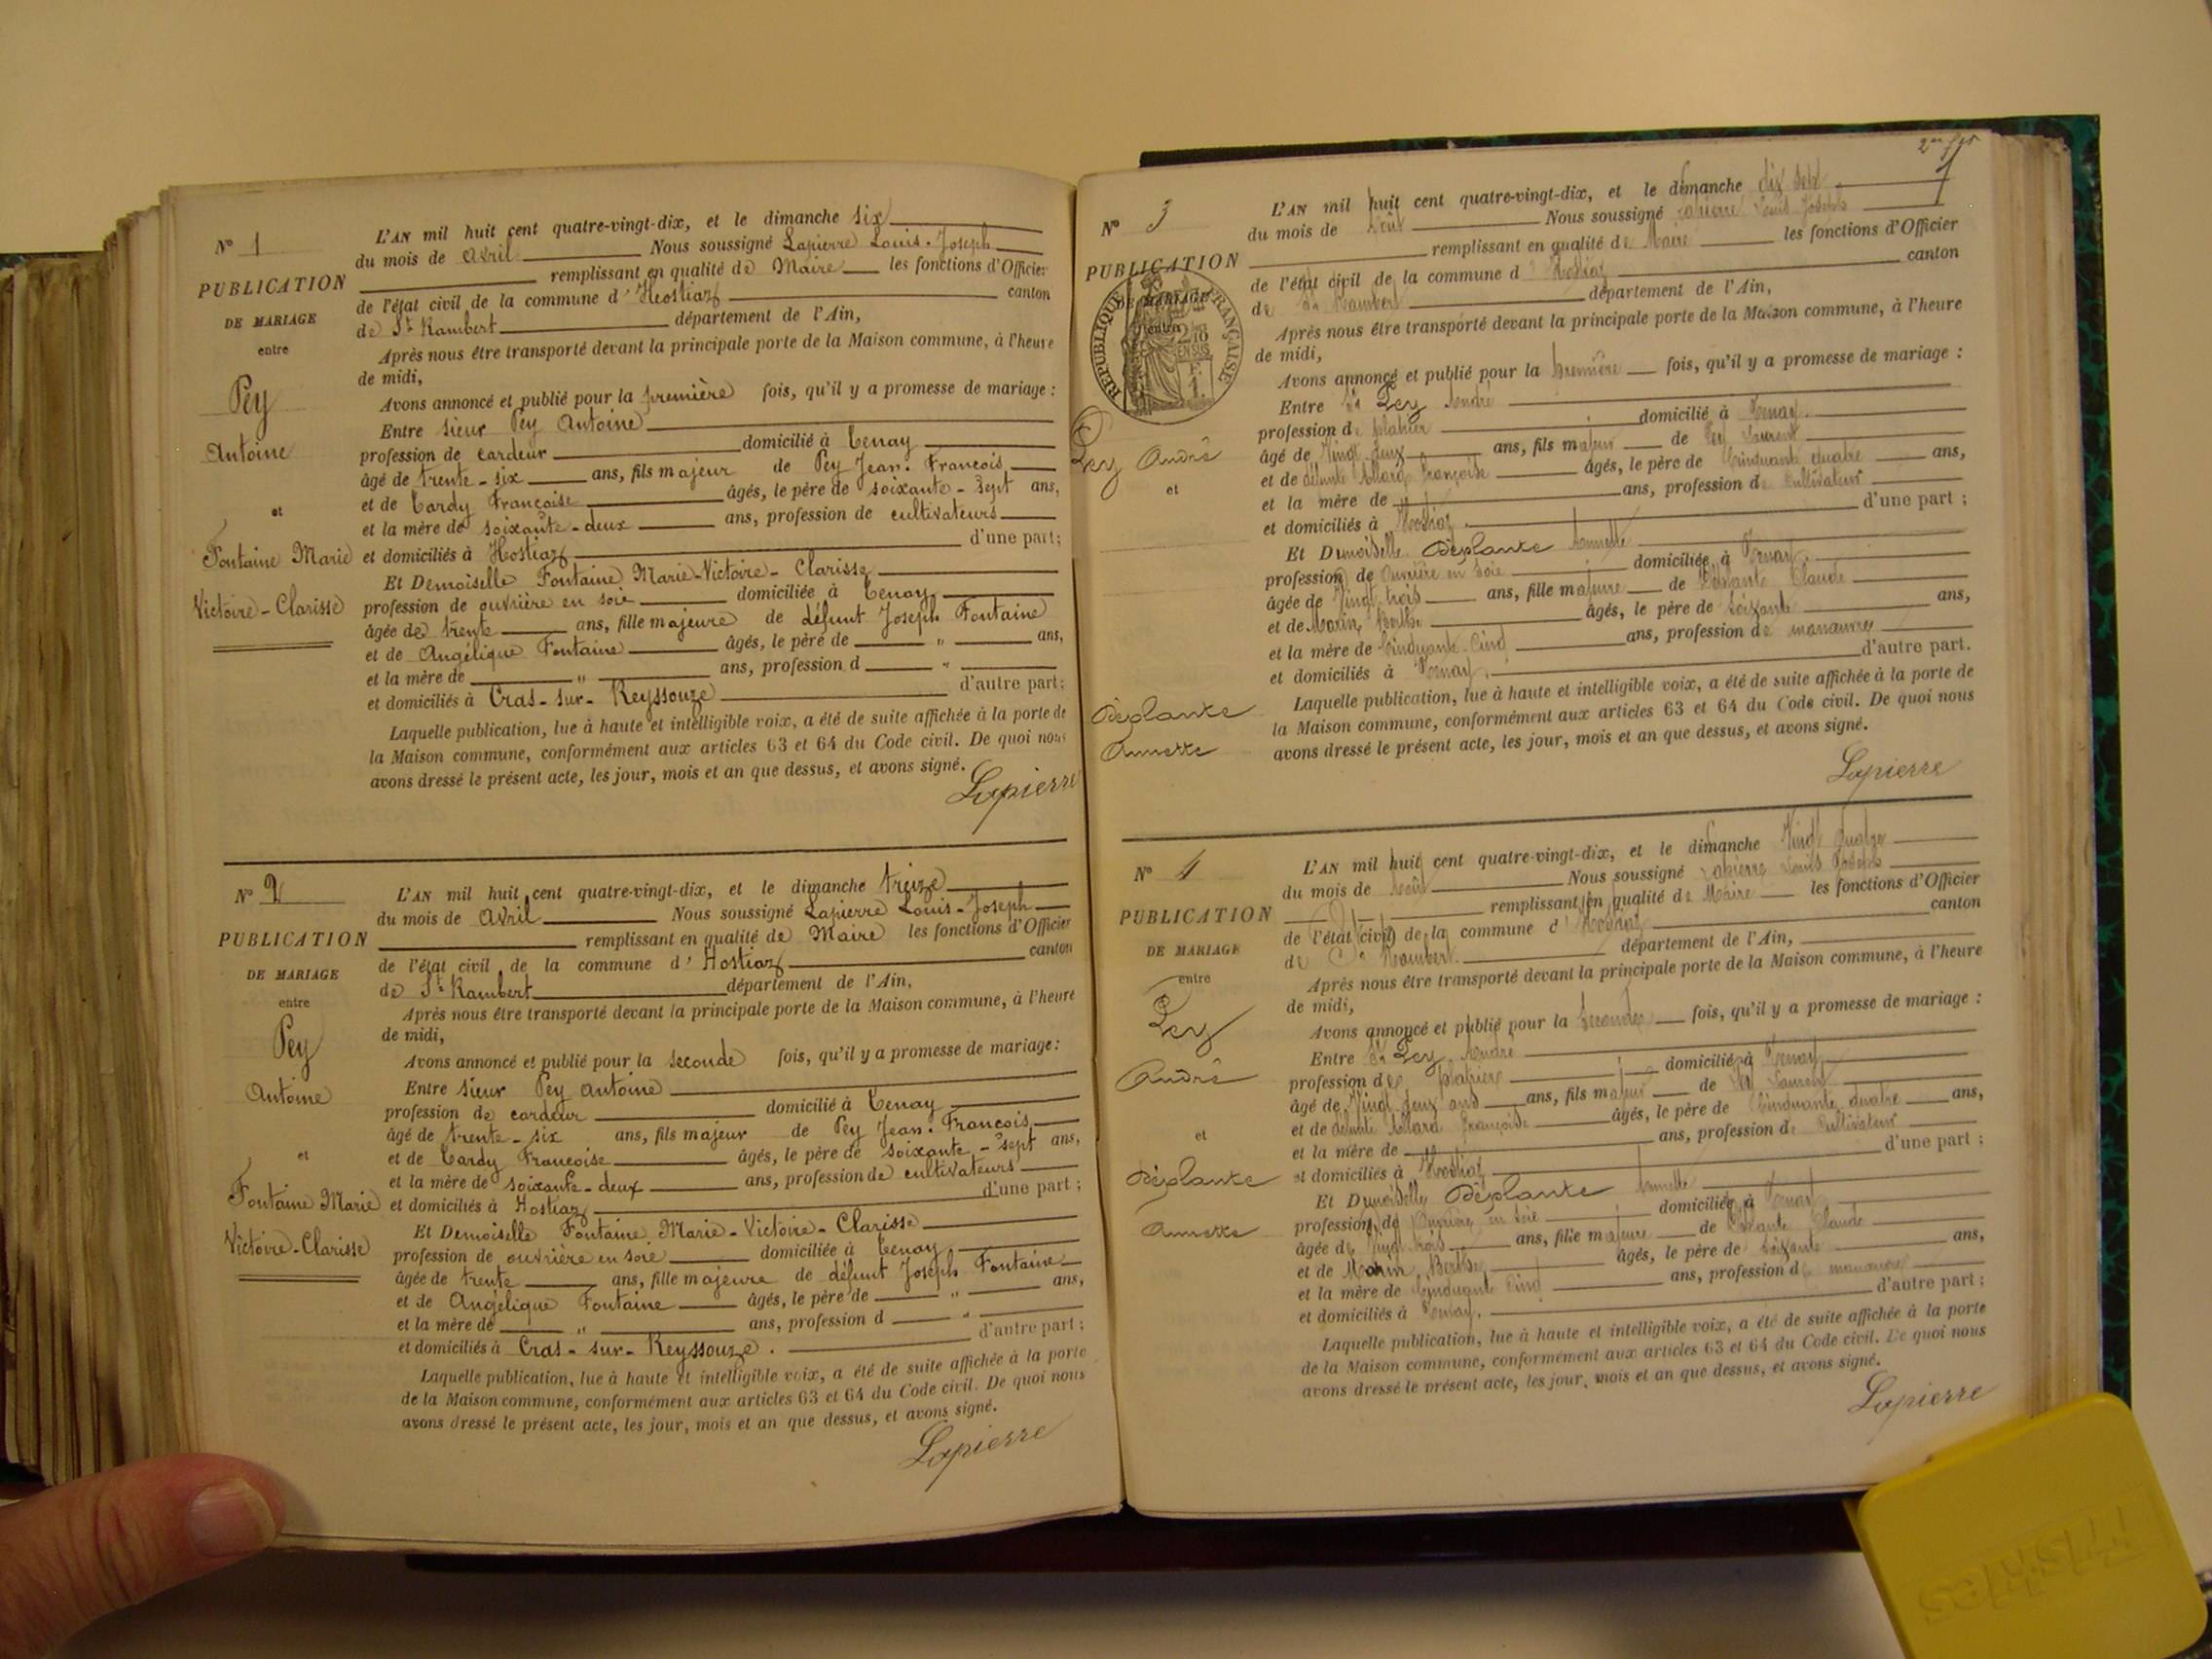 N° 1
PUBLICATION
DE MARIAGE
entre
Pey
Antoine
et
Fontaine Marie
Victoire-Clarisse
L'AN mil huit cent quatre-vingt-dix, et le dimanche six
du mois de Avril Nous soussigné Lapierre Louis-Joseph
remplissant en qualité de Maire les fonctions d'Officier
de l'état civil de la commune d'Hostiaz canton
de St Rambert département de l'Ain,
Après nous être transporté devant la principale porte de la Maison commune, à l'heure
de midi,
Avons annoncé et publié pour la première fois, qu'il y a promesse de mariage :
Entre sieur Pey Antoine
profession de cardeur domicilié à Tenay
âgé de trente-six ans, fils majeur de Pey Jean-François
et de Cardy Françoise âgés, le père de soixante-sept ans,
et la mère de soixante-deux ans, profession de cultivateurs
et domiciliés à Hostiaz d'une part;
Et Demoiselle Fontaine Marie-Victoire-Clarisse
profession de ouvrière en soie domiciliée à Tenay
âgée de trente ans, fille majeure de défunt Joseph Fontaine
et de Angélique Fontaine âgés, le père de " ans,
et la mère de " ans, profession d "
et domiciliés à Cras-sur-Reyssouze d'autre part;
Laquelle publication, lue à haute et intelligible voix, a été de suite affichée à la porte de
la Maison commune, conformément aux articles 63 et 64 du Code civil. De quoi nous
avons dressé le présent acte, les jour, mois et an que dessus, et avons signé.
Lapierre
N° 2
PUBLICATION
DE MARIAGE
entre
Pey
Antoine
et
Fontaine Marie
Victoire-Clarisse
L'AN mil huit cent quatre-vingt-dix, et le dimanche treize
du mois de Avril Nous soussigné Lapierre Louis-Joseph
remplissant en qualité de Maire les fonctions d'Officier
de l'état civil de la commune d'Hostiaz canton
de St Rambert département de l'Ain,
Après nous être transporté devant la principale porte de la Maison commune, à l'heure
de midi,
Avons annoncé et publié pour la seconde fois, qu'il y a promesse de mariage:
Entre sieur Pey Antoine
profession de cardeur domicilié à Tenay
âgé de trente-six ans, fils majeur de Pey Jean-François
et de Cardy Françoise âgés, le père de soixante-sept ans,
et la mère de soixante-deux ans, profession de cultivateurs
et domiciliés à Hostiaz d'une part ;
Et Demoiselle Fontaine Marie-Victoire-Clarisse
profession de ouvrière en soie domiciliée à Tenay
âgée de trente ans, fille majeure de défunt Joseph Fontaine
et de Angélique Fontaine âgés, le père de " ans,
et la mère de " ans, profession d "
et domiciliés à Cras-sur-Reyssouze. d'autre part ;
Laquelle publication, lue à haute et intelligible voix, a été de suite affichée à la porte
de la Maison commune, conformément aux articles 63 et 64 du Code civil. De quoi nous
avons dressé le présent acte, les jour, mois et an que dessus, et avons signé.
Lapierre
N° 3
PUBLICATION
DE MARIAGE
RÉPUBLIQUE FRANÇAISE
Pey André
et
Déplante
Annette
L'AN mil huit cent quatre-vingt-dix, et le dimanche dix sept
du mois de Août Nous soussigné Lapierre Louis Joseph
remplissant en qualité de Maire les fonctions d'Officier
de l'état civil de la commune d'Hostiaz canton
de St Rambert département de l'Ain,
Après nous être transporté devant la principale porte de la Maison commune, à l'heure
de midi,
Avons annoncé et publié pour la première fois, qu'il y a promesse de mariage :
Entre Sr Pey André
profession de platrier domicilié à Tenay.
âgé de Vingt deux ans, fils majeur de Pey Laurent
et de défunte Allard Françoise âgés, le père de Cinquante quatre ans,
et la mère de ans, profession de cultivateur
et domiciliés à Hostiaz. d'une part ;
Et Demoiselle Déplante Annette
profession de ouvrière en soie domiciliée à Tenay.
âgée de Vingt trois ans, fille majeure de Déplante Claude
et de Marin Berthe âgés, le père de soixante ans,
et la mère de Cinquante Cinq ans, profession de manœuvre
et domiciliés à Tenay. d'autre part.
Laquelle publication, lue à haute et intelligible voix, a été de suite affichée à la porte de
la Maison commune, conformément aux articles 63 et 64 du Code civil. De quoi nous
avons dressé le présent acte, les jour, mois et an que dessus, et avons signé.
Lapierre
N° 4
PUBLICATION
DE MARIAGE
entre
Pey
André
et
Déplante
Annette
L'AN mil huit cent quatre-vingt-dix, et le dimanche Vingt quatre
du mois de Août Nous soussigné Lapierre Louis Joseph
remplissant en qualité de Maire les fonctions d'Officier
de l'état civil de la commune d'Hostiaz canton
de St Rambert. département de l'Ain,
Après nous être transporté devant la principale porte de la Maison commune, à l'heure
de midi,
Avons annoncé et publié pour la seconde fois, qu'il y a promesse de mariage :
Entre Sr Pey André
profession de platrier domicilié à Tenay
âgé de Vingt deux ans ans, fils majeur de Pey Laurent
et de défunte Allard Françoise âgés, le père de Cinquante quatre ans,
et la mère de ans, profession de cultivateur
et domiciliés à Hostiaz d'une part ;
Et Demoiselle Déplante Annette
profession de ouvrière en soie domiciliée à Tenay
âgée de Vingt trois ans, fille majeure de Déplante Claude
et de Marin Berthe âgés, le père de soixante ans,
et la mère de Cinquante Cinq ans, profession de manœuvre
et domiciliés à Tenay. d'autre part ;
Laquelle publication, lue à haute et intelligible voix, a été de suite affichée à la porte
de la Maison commune, conformément aux articles 63 et 64 du Code civil. De quoi nous
avons dressé le présent acte, les jour, mois et an que dessus, et avons signé.
Lapierre